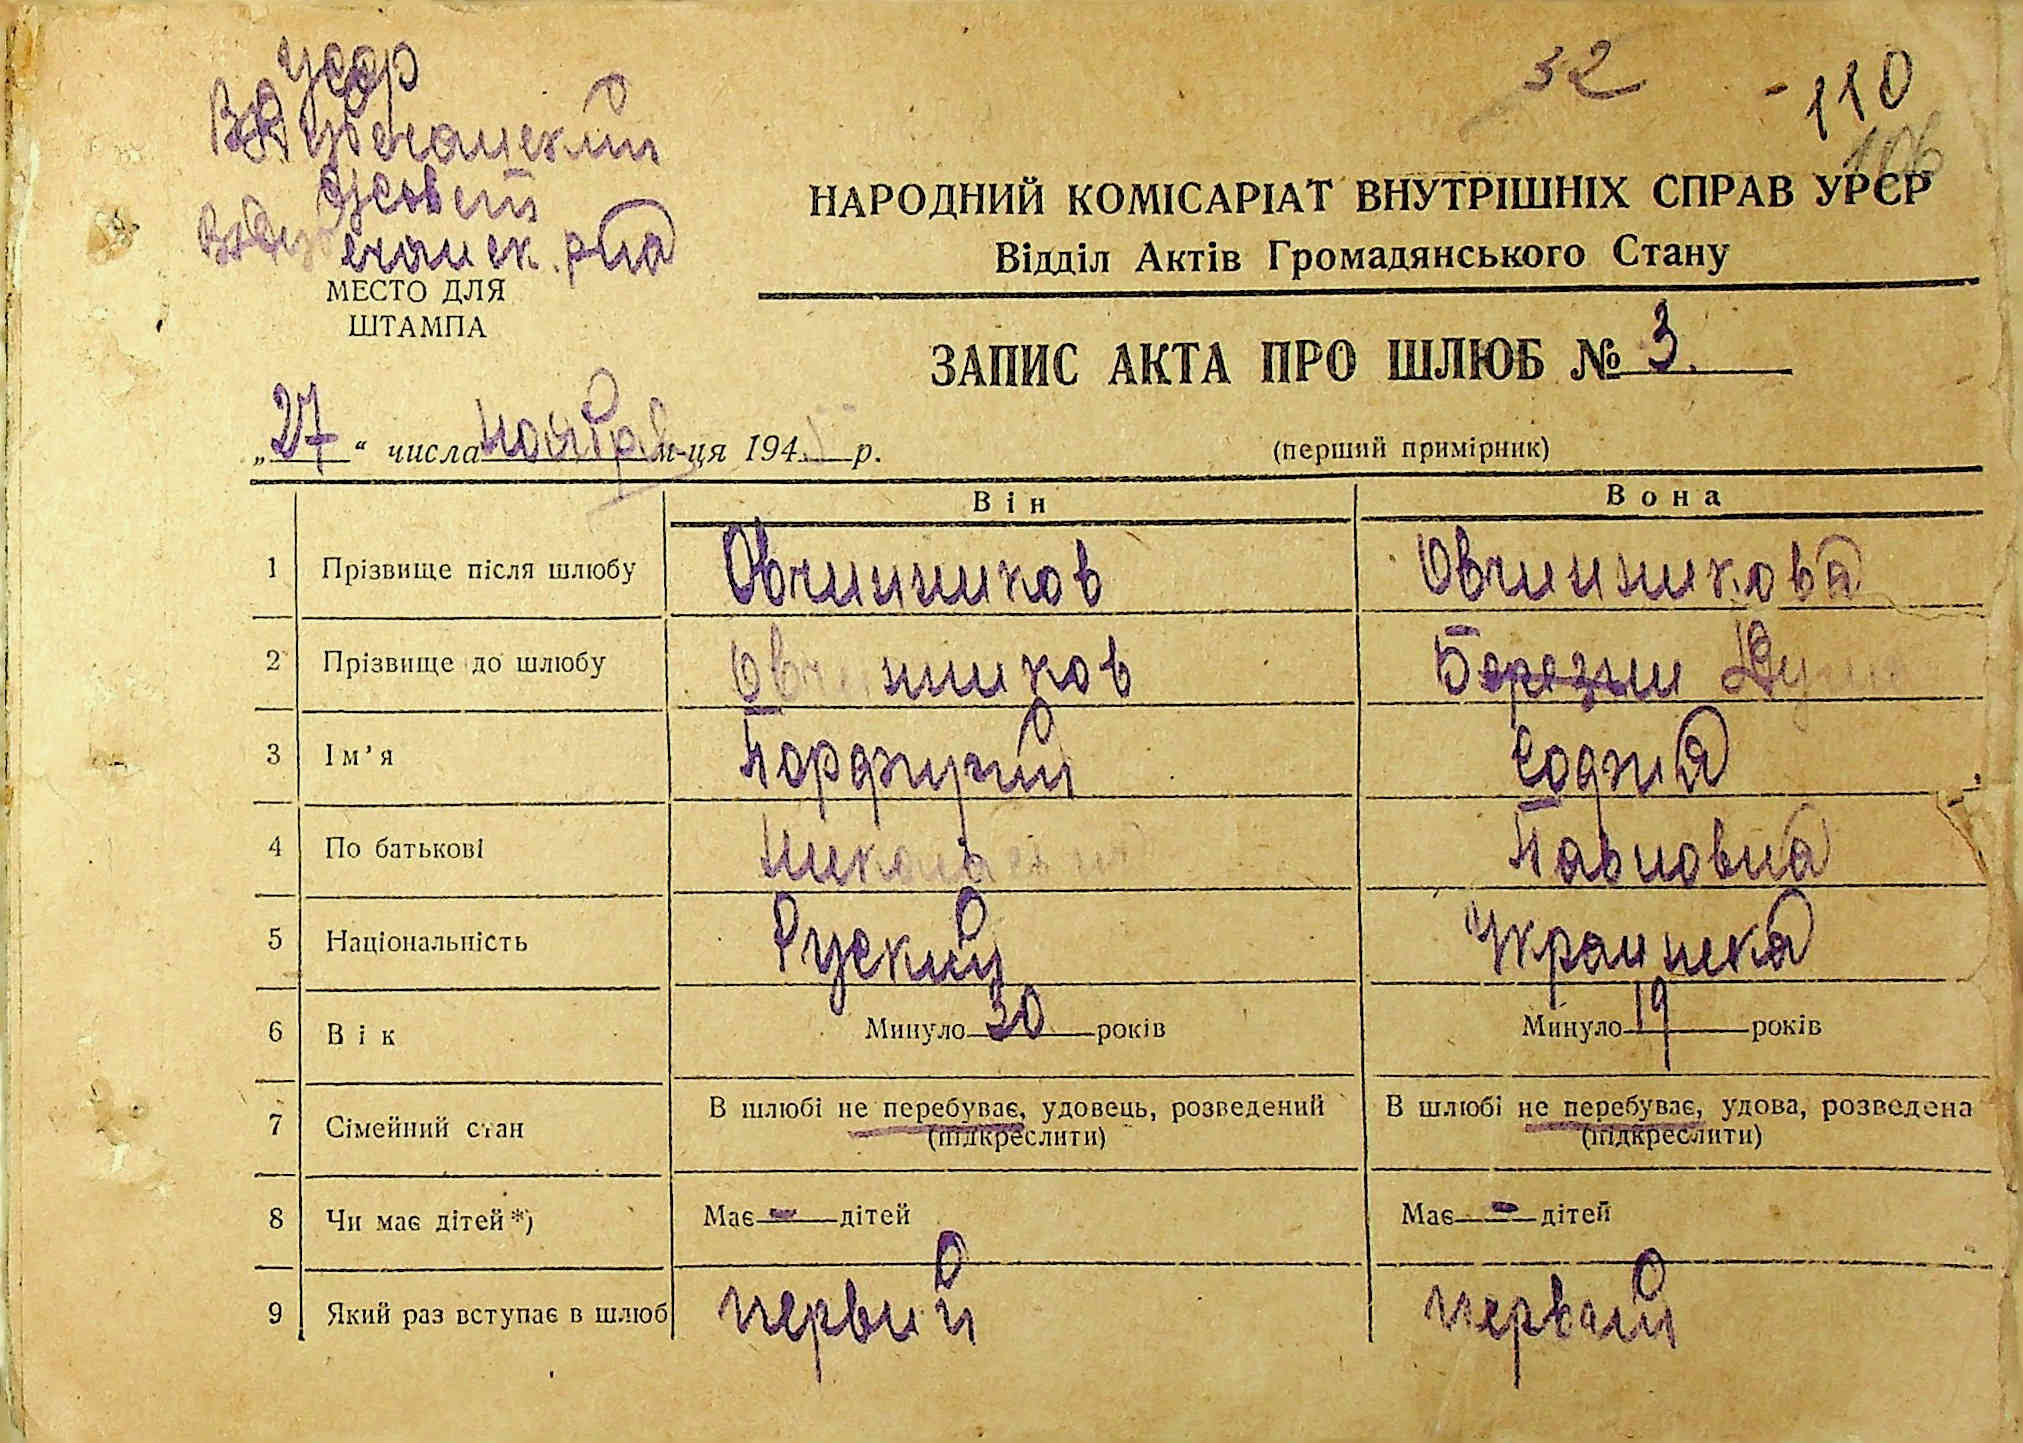 усср
МЕСТО ДЛЯ
ШТАМПА
32
-110
106
НАРОДНИЙ КОМІСАРІАТ ВНУТРІШНІХ СПРАВ УРСР
Відділ Актів Громадянського Стану
ЗАПИС АКТА ПРО ШЛЮБ № 3.
„27“ числа ноября м-ця 194 р.
(перший примірник)
Він Вона
1 Прізвище після шлюбу Овчинников Овчинникова
2 Прізвище до шлюбу Овчинников
3 Ім'я Порфирий София
4 По батькові Николаевич Павловна
5 Національність Руский Украинка
6 Вік Минуло 30 років Минуло 19 років
7 Сімейний стан В шлюбі не перебуває, удовець, розведений В шлюбі не перебуває, удова, розведена
(підкреслити) (підкреслити)
8 Чи має дітей *) Має - дітей Має - дітей
9 Який раз вступає в шлюб первий первый